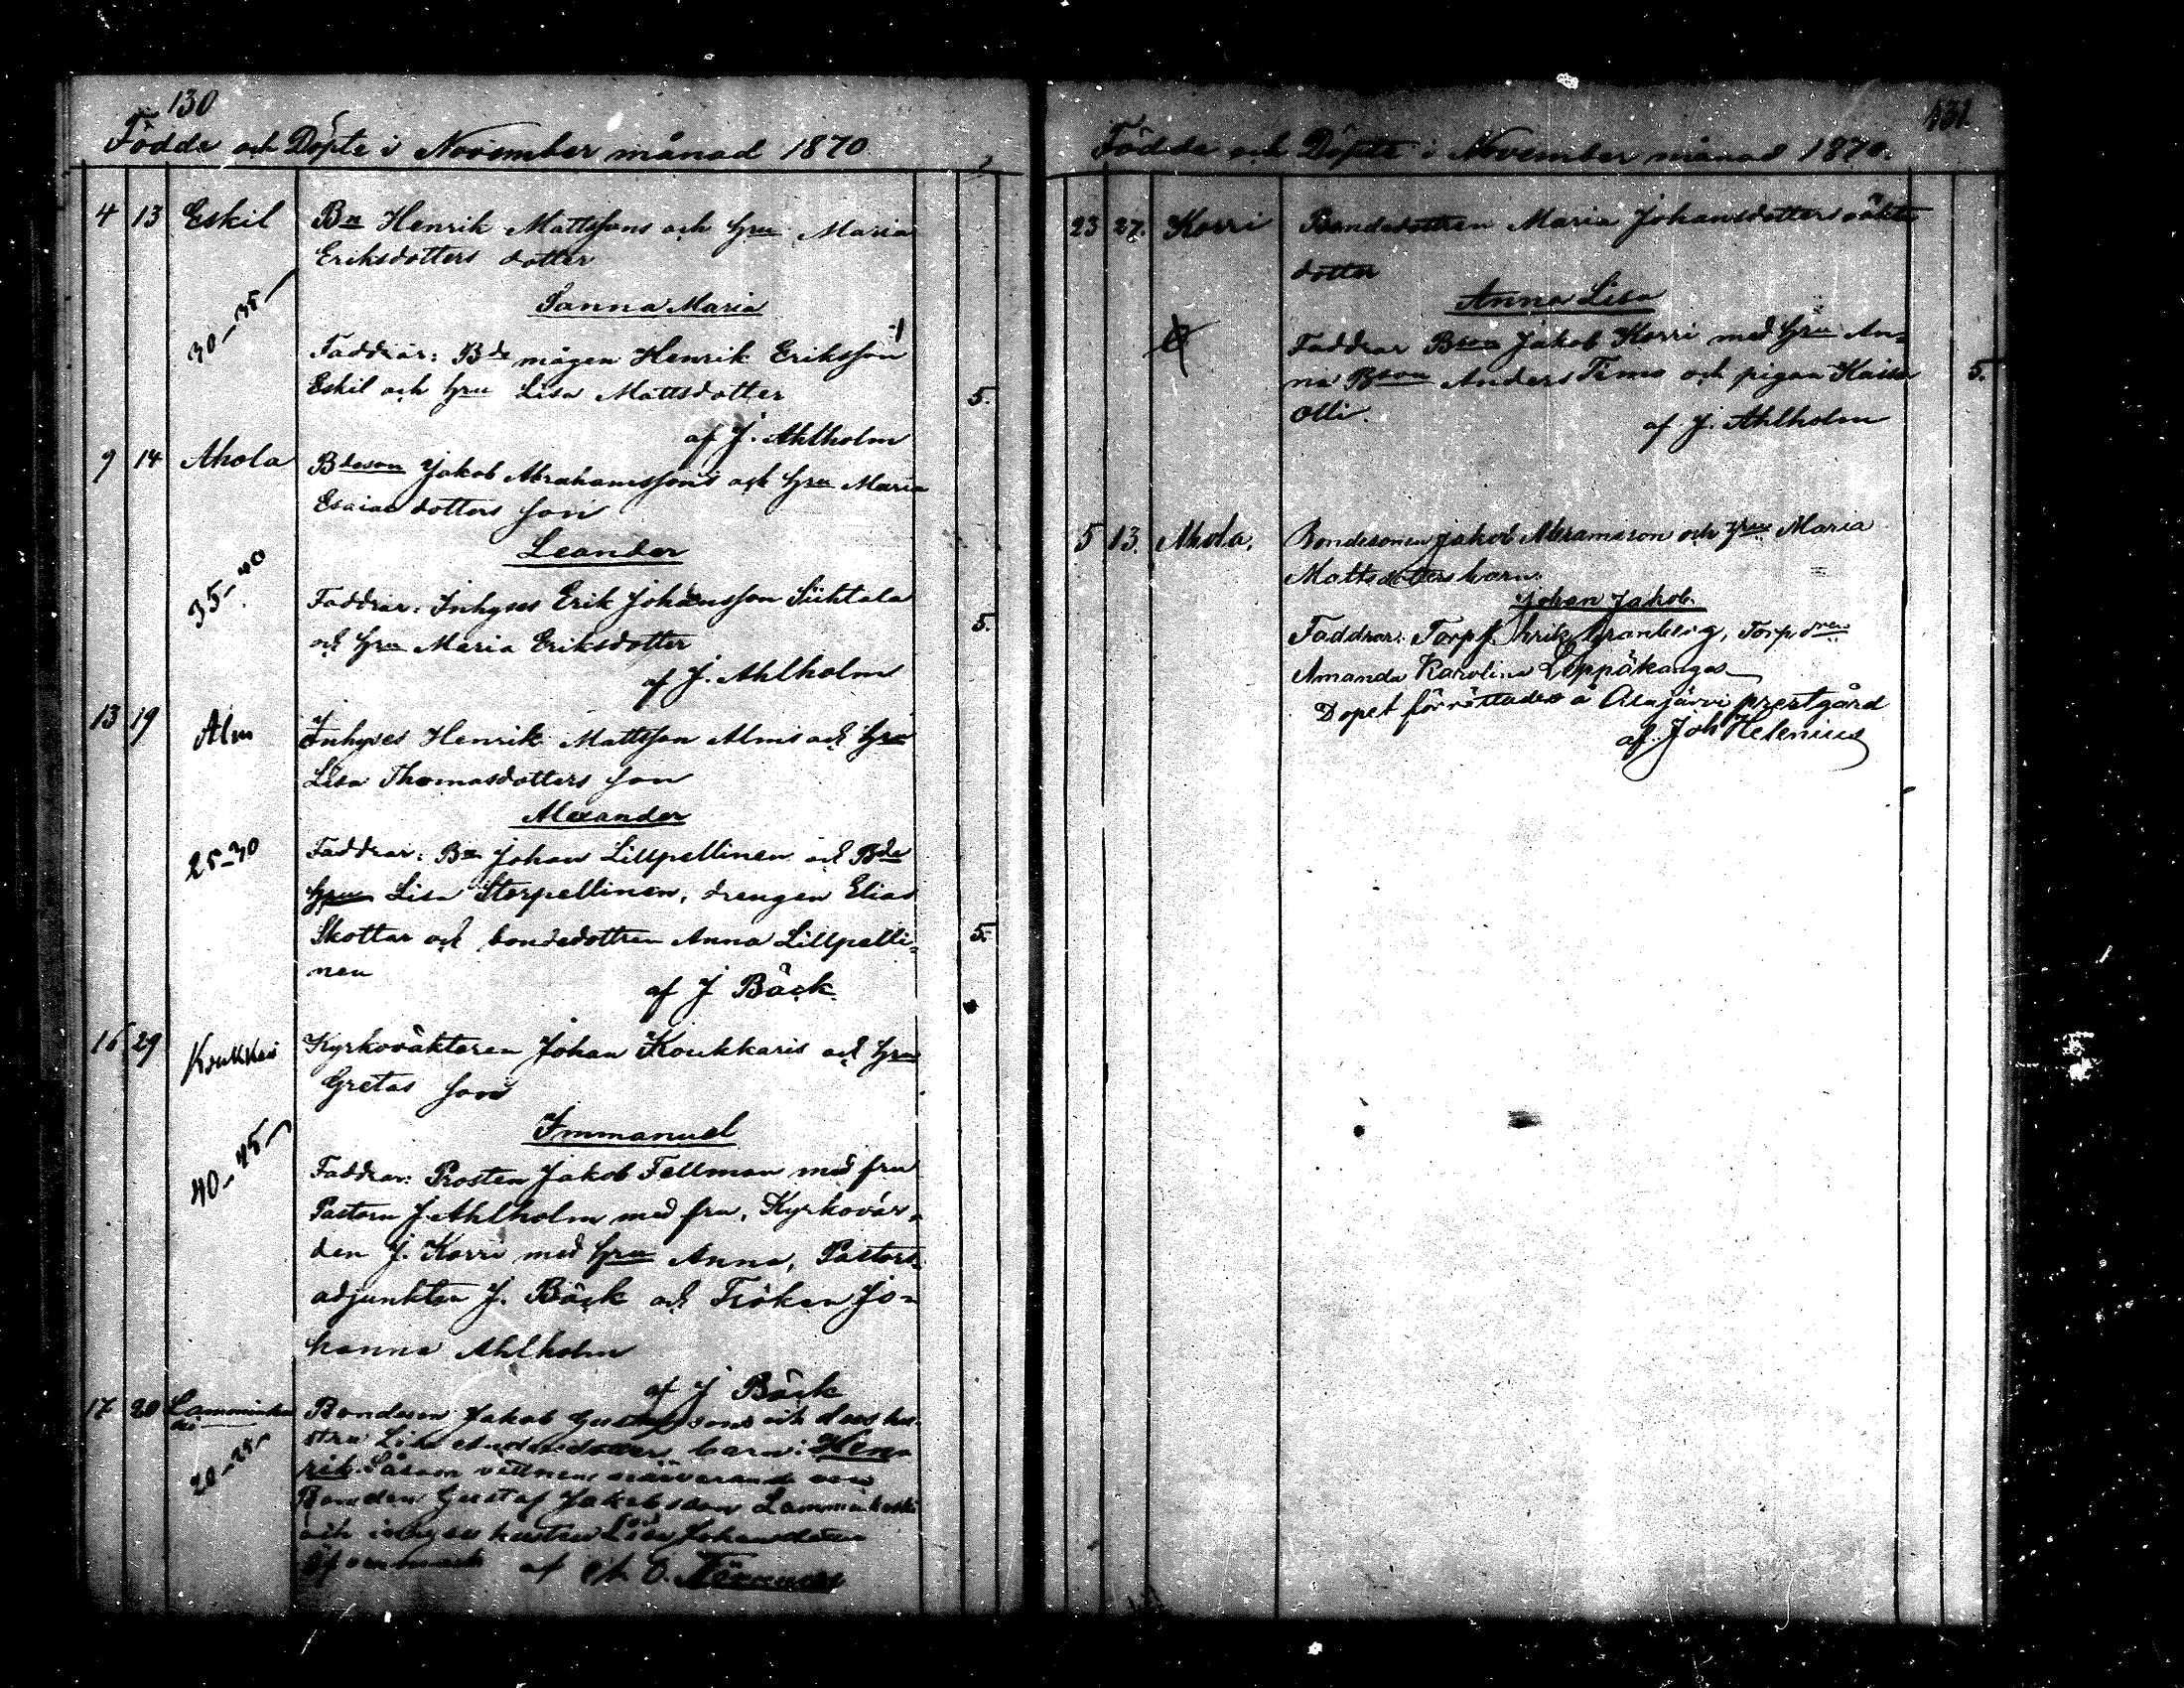 130
Födde och Döpte i November månad 1870
4 13 Eskil Bn Henrik Mattssons och hru Maria
Eriksdotters dotter
Sanna Maria
30-35
Faddrar: Bde mågen Henrik Eriksson
Eskil och hru Lisa Mattsdotter 5.
af J. Ahlholm
9 14 Ahola Bdeson Jakob Abrahamssons och hru Maria
Esaiae dotters son
Leander
35-40
Faddrar: Inhyses Erik Johansson Siiktala 5.
och hru Maria Eriksdotter
af J. Ahlholm
13 19 Alm Inhyses Henrik Mattsson Alms och hru
Lisa Thomasdotters son
Alexander
25-30
Faddrar: Bn Johan Lillpellinen och Bde
hru Lisa Storpellinen, drengen Elias
Skottar och bondedottren Anna Lillpelli= 5.
nen
af J Bäck
16 29 Koukkari Kyrkoväkteren Johan Koukkaris och hru
Gretas son
Immanuel
40-45
Faddrar: Prosten Jakob Fellman med fru
Pastorn J. Ahlholm med fru, Kyrkovär=
den J. Korri med hru Anna, Pastors=
adjunkten J. Bäck och Fröken Jo=
hanna Ahlholm
af J Bäck
17 20 Bondeson Jakob Gustafssons och dess hu-
stru Lisa barn: Hen=
20-25
rik. Såsom vittnen närvarande voro
Bonden Gustaf Jakobsson Lamminkoski
och inhyses hustru Lisa
af
131.
Födde och Döpte i November månad 1870.
23 27. Korri Bondedottren Maria Johansdotters oäkta
dotter
Anna Lisa
Faddrar Bson Jakob Korri med hru An=
na Bson Anders Timo och pigan Kaisa 5.
Olli.
af J. Ahlholm
5 13. Ahola. Bondesonen Jakob Abramsson och hru Maria
Mattsdotters barn:
Johan Jakob.
Faddrar: Torp. Erik Granberg, Torp dren
Amanda Karolina Leppäkangas
Dopet förrättades å Alajärvi prestgård
af Joh Helenius